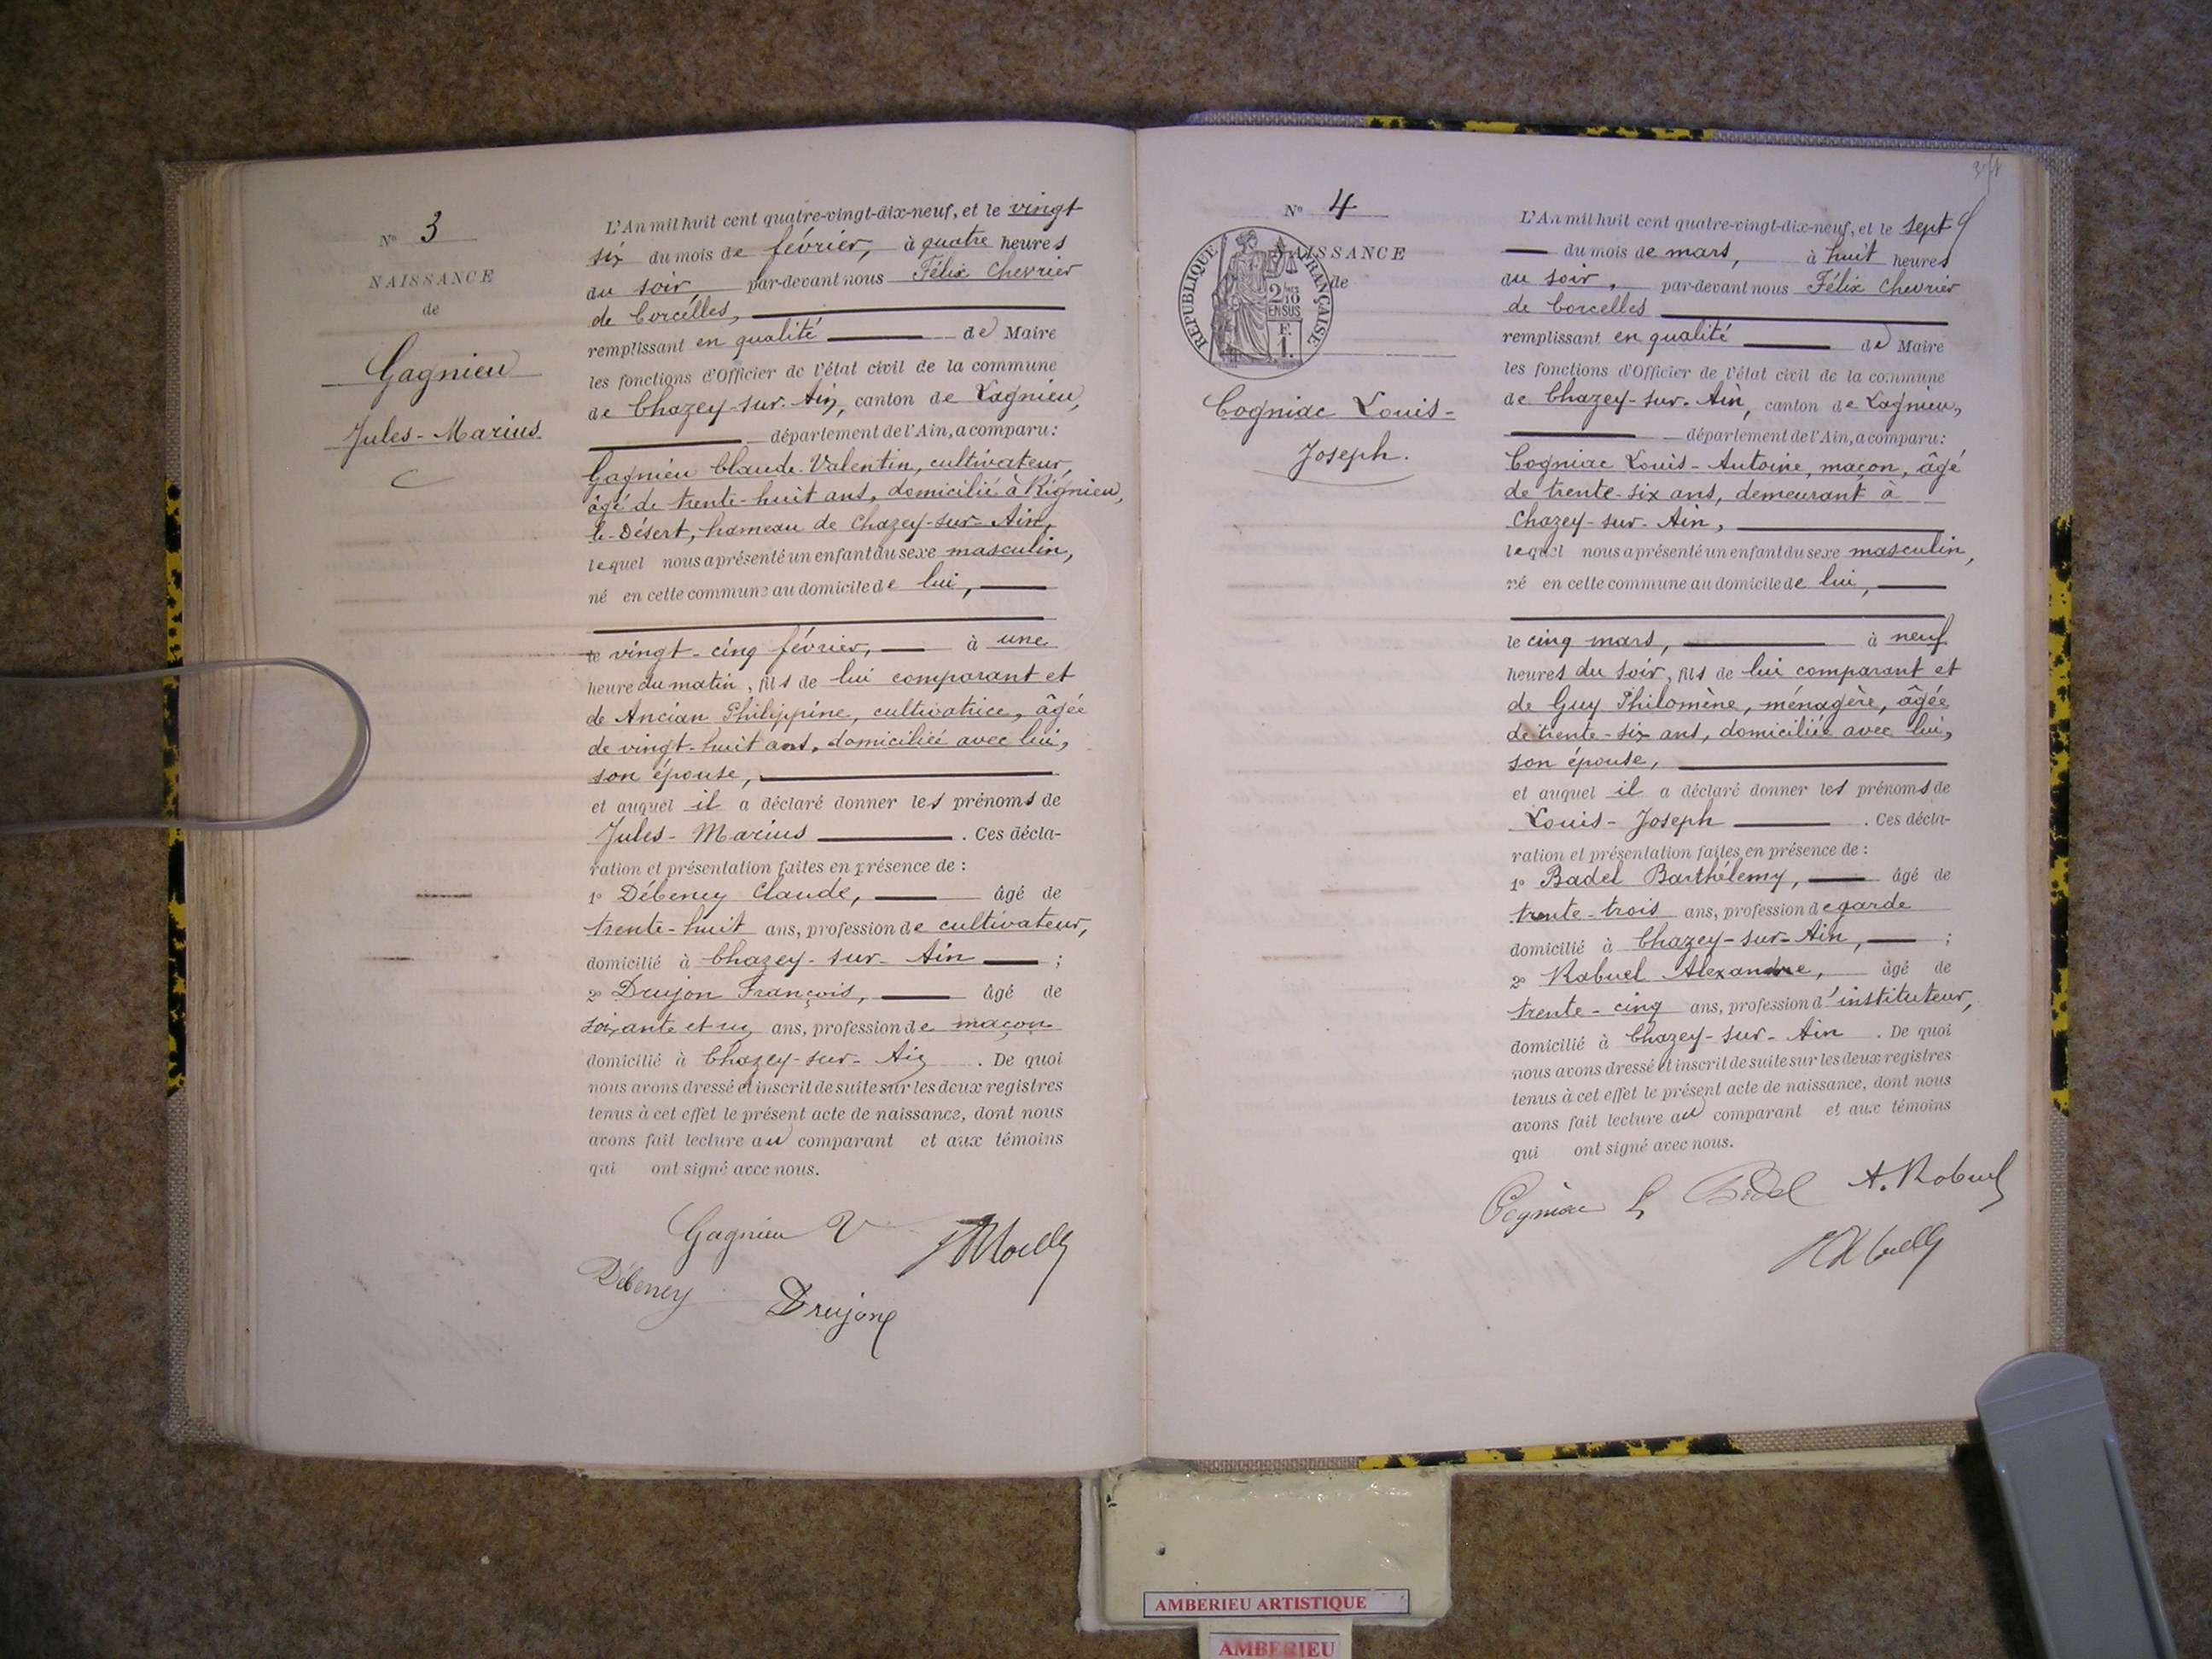 N° 3
NAISSANCE
de
Gagnieu
Jules-Marius
L'An mil huit cent quatre-vingt-dix-neuf, et le vingt
six du mois de février, à quatre heures
du soir par-devant nous Félix Chevrier
de Corcelles,
remplissant en qualité de Maire
les fonctions d'Officier de l'état civil de la commune
de Chazey-sur-Ain, canton de Lagnieu,
département de l'Ain, a comparu:
Gagnieu Claude-Valentin, cultivateur,
âgé de trente-huit ans, domicilié à Rignieu,
le-Désert, hameau de Chazey-sur-Ain,
lequel nous a présenté un enfant du sexe masculin,
né en cette commune au domicile de lui,
le vingt-cinq février, à une
heure du matin, fils de lui comparant et
de Ancian Philippine, cultivatrice, âgée
de vingt-huit ans, domiciliée avec lui,
son épouse,
et auquel il a déclaré donner les prénoms de
Jules-Marius. Ces décla-
ration et présentation faites en présence de :
1° Débeney Claude, âgé de
trente-huit ans, profession de cultivateur,
domicilié à Chazey-sur-Ain ;
2° Drujon François, âgé de
soixante et un ans, profession de maçon
domicilié à Chazey-sur-Ain. De quoi
nous avons dressé et inscrit de suite sur les deux registres
tenus à cet effet le présent acte de naissance, dont nous
avons fait lecture au comparant et aux témoins
qui ont signé avec nous.
Gagnieu V
Débeney Drujon
N° 4
NAISSANCE
de
REPUBLIQUE FRANÇAISE
2/10
EN SUS
F.
1.
Cogniac Louis-
Joseph.
L'An mil huit cent quatre-vingt-dix-neuf, et le sept
du mois de mars, à huit heures
du soir, par-devant nous Félix Chevrier
de Corcelles
remplissant en qualité de Maire
les fonctions d'Officier de l'état civil de la commune
de Chazey-sur-Ain, canton de Lagnieu,
département de l'Ain, a comparu:
Cogniac Louis-Antoine, maçon, âgé
de trente-six ans, demeurant à
Chazey-sur-Ain,
lequel nous a présenté un enfant du sexe masculin,
né en cette commune au domicile de lui,
le cinq mars, à neuf
heures du soir, fils de lui comparant et
de Guy Philomène, ménagère, âgée
de trente-six ans, domiciliée avec lui,
son épouse,
et auquel il a déclaré donner les prénoms de
Louis-Joseph. Ces décla-
ration et présentation faites en présence de :
1° Badel Barthélemy, âgé de
trente-trois ans, profession de garde
domicilié à Chazey-sur-Ain, ;
2° Rabuel Alexandre, âgé de
trente-cinq ans, profession d'instituteur,
domicilié à Chazey-sur-Ain. De quoi
nous avons dressé et inscrit de suite sur les deux registres
tenus à cet effet le présent acte de naissance, dont nous
avons fait lecture au comparant et aux témoins
qui ont signé avec nous.
Cogniac L Badel A. Rabuel
AMBERIEU ARTISTIQUE
AMBERIEU